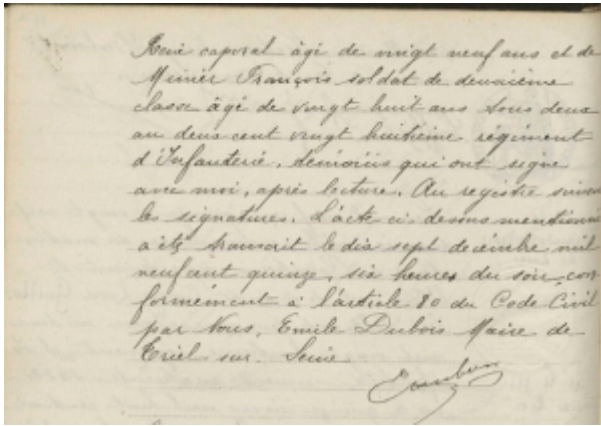 René caporal âgé de vingt neuf ans et de
Minier François soldat de deuxième
classe âgé de vingt huit ans tous deux
au deux cent vingt huitième régiment
d'Infanterie, témoins qui ont signé
avec moi, après lecture. Au registre suivent
les signatures. L'acte ci-dessus mentionné
a été transcrit le dix sept décembre mil
neuf cent quinze, six heures du soir, con
formément à l'article 80 du Code Civil
par Nous, Emile Dubois Maire de
Triel sur Seine